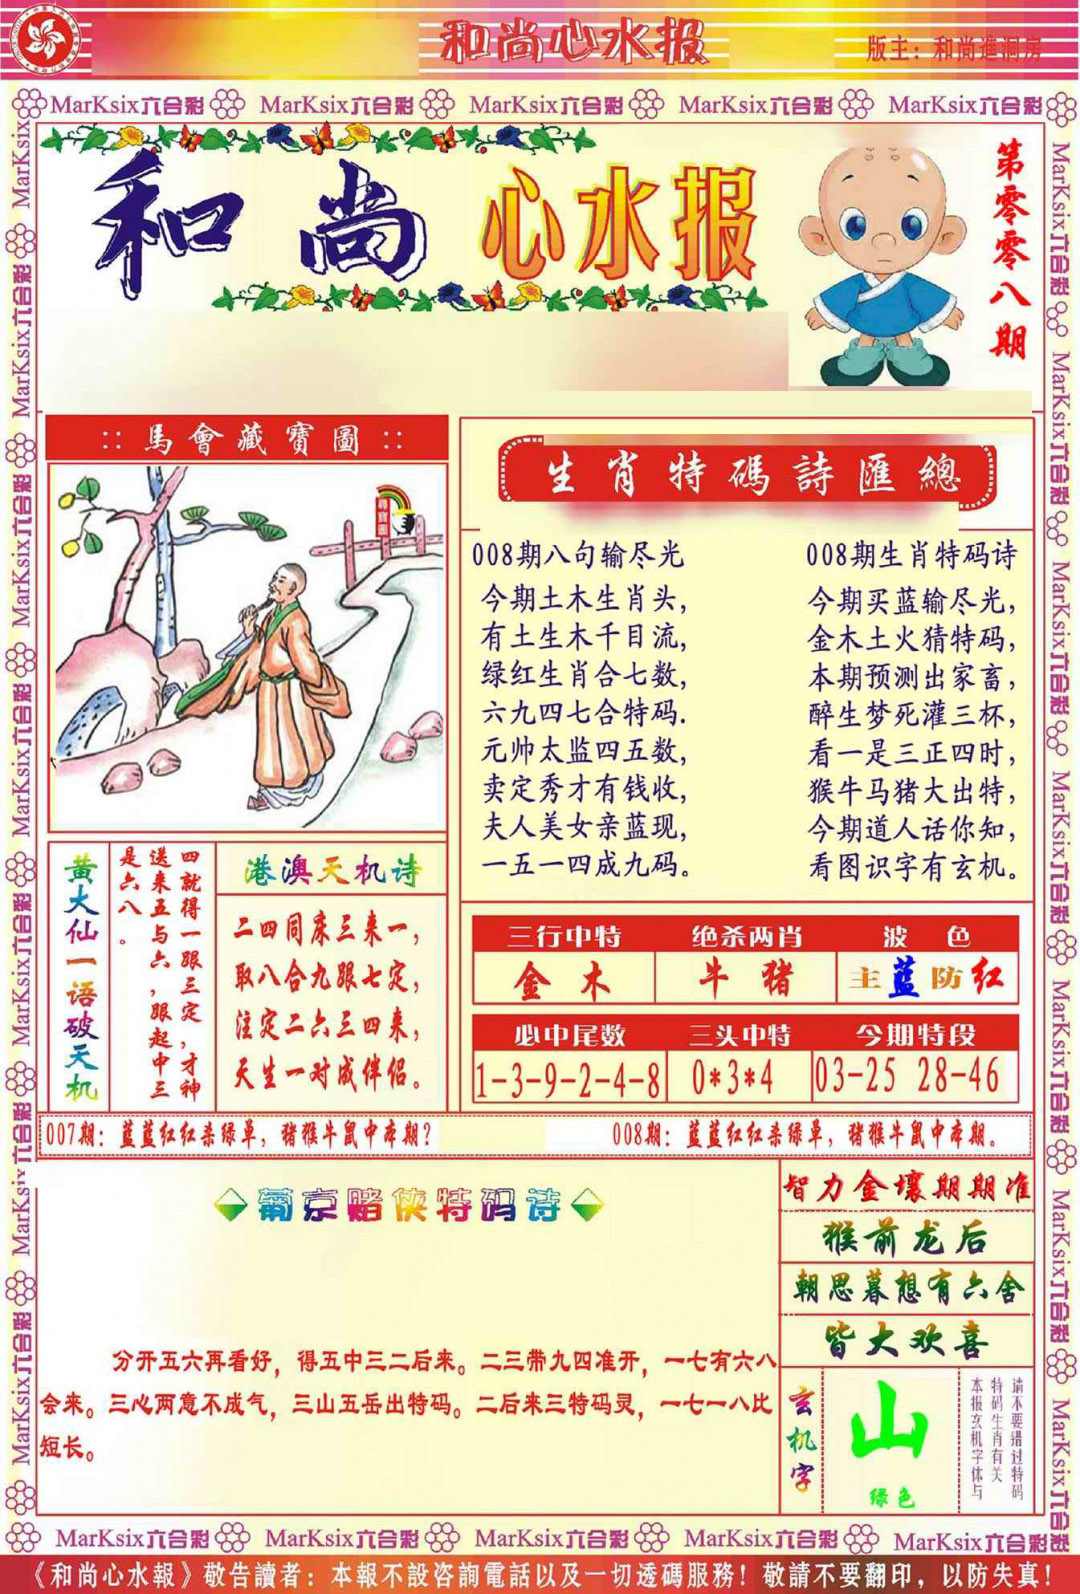 和尚心水报
版主：和尚進洞房
MarKsix六合彩 MarKsix六合彩 MarKsix六合彩 MarKsix六合彩 MarKsix六合彩
和尚 心水报
第零零八期
::馬會藏寶圖::
生肖特碼詩匯總
008期八句输尽光
今期土木生肖头，
有土生木千目流，
绿红生肖合七数，
六九四七合特码.
元帅太监四五数，
卖定秀才有钱收，
夫人美女亲蓝现，
一五一四成九码。
008期生肖特码诗
今期买蓝输尽光，
金木土火猜特码，
本期预测出家畜，
醉生梦死灌三杯，
看一是三正四时，
猴牛马猪大出特，
今期道人话你知，
看图识字有玄机。
黄大仙一语破天机
四就得一跟三定，才神
送来五与六，跟起中三
是六八。
港澳天机诗
二四同床三来一，
取八合九跟七定，
注定二六三四来，
天生一对成伴侣。
三行中特 绝杀两肖 波色
金木 牛猪 主蓝防红
必中尾数 三头中特 今期特段
1-3-9-2-4-8 0*3*4 03-25 28-46
007期：蓝蓝红红杀绿单，猪猴牛鼠中本期？
008期：蓝蓝红红杀绿单，猪猴牛鼠中本期。
葡京赌侠特码诗
分开五六再看好，得五中三二后来。二三带九四准开，一七有六八
会来。三心两意不成气，三山五岳出特码。二后来三特码灵，一七一八比
短长。
智力金壤期期准
猴前龙后
朝思暮想有六舍
皆大欢喜
玄机字
山
绿色
请不要错过特码
特码生肖有关
本报玄机字体与
MarKsix六合彩 MarKsix六合彩 MarKsix六合彩 MarKsix六合彩 MarKsix六合彩
《和尚心水報》敬告讀者：本報不設咨詢電話以及一切透碼服務！敬請不要翻印，以防失真！